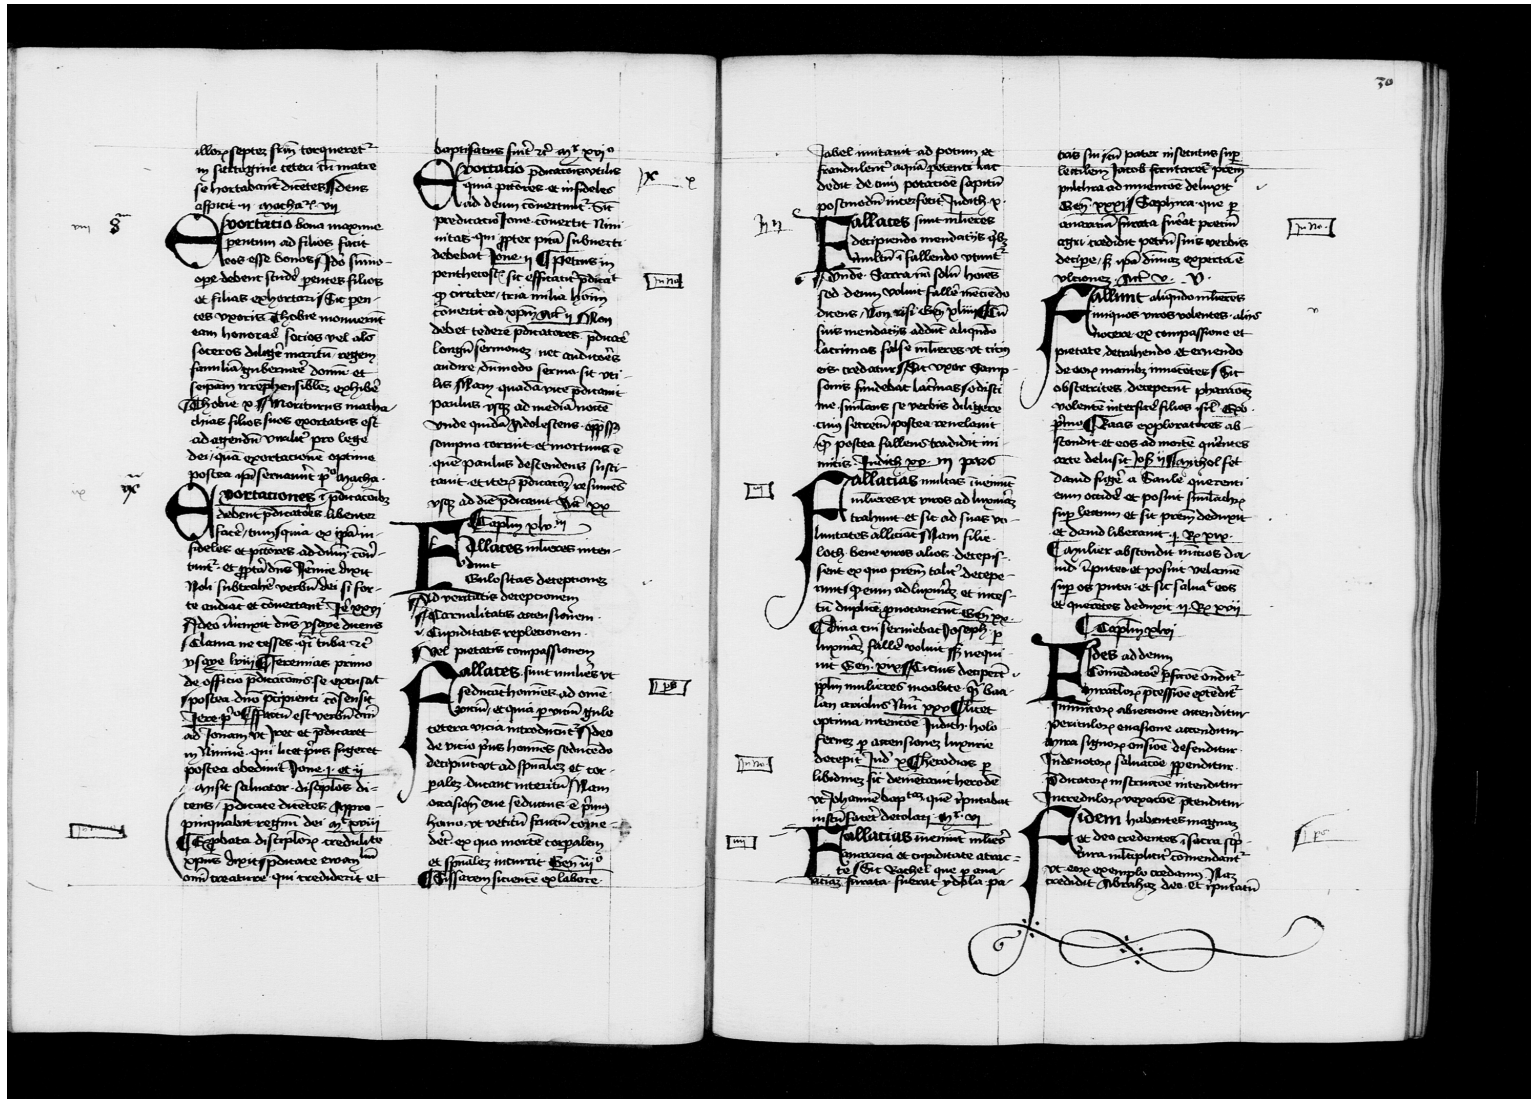 30
illorum septem fratrum torqueretur
in sartagine ceteri cum matre
se hortabantur dicentes Deus
aspiciet ii machab. vii
Exortatio bona maxime
parentum ad filios facit
eos esse bonos Ideo summo
opere debent studere parentes filios
et filias exhortari Sic paren-
tes uxoris Thobie monuerunt
eam honorare socios vel alios
soceros diligere maritum regere
familiam gubernare domum et
seipsam irreprehensibilem exhibere
Thobie x Moriturus matha-
thias filios suos exortatus est
ad agendum viriliter pro lege
dei quam exortationem optime
postea ipsi servaverunt po macha.
Exortationes in predicationibus
debent predicatores libenter
facere tum quia ex ipsa in-
fideles et peccatores ad deum conver-
tuntur et propterea dominus Jeremie dixit
Noli subtrahere verbum dei si for-
te audiant et convertantur Jer xxvi
Ideo iniunxit dominus ysaye dicens
Clama ne cesses quasi tuba etc
ysaye lviii Jeremias primo
de officio predicationis se excusat
postea domino precipienti consensit
Jere po Factum est verbum domini
ad Jonam ut iret et predicaret
in Ninive qui licet prius fugeret
postea obedivit Jone i et ii
Misit salvator discipulos di-
cens predicate dicentes Appro-
pinquabit regnum dei mt xviii
Exprobata discipulorum credulitate
xpristus dixit predicate evangelium
omni creature qui crediderit et
baptisatus fuerit etc mr xvi
Exortatio predicationis utilis
quia peccatores et infideles
ad deum convertuntur Sic
predicatio Jone convertit Nini-
vitas qui propter peccatum subverti
debebat Jone ii Petrus in
penthecoste sic efficaciter predicavit
quod circiter tria milia hominum
convertit ad xpristum Act ii Non
debet tedere predicatores predicare
longum sermonem nec auditores
audire dummodo sermo sit uti-
lis Nam quadam vice predicavit
paulus usque ad mediam noctem
Unde quidam Adolescens oppressus
sompno corruit et mortuus est
quem paulus descendens susci-
tavit et iterum predicatorem resumens
usque ad diem predicavit Act xx
Capitulum xlv
Fallaces mulieres inten-
dunt
Gulositas deceptionem
Ad voracitatis deceptionem
Carnalitatis accensionem
Cupiditatis repletionem
Vel pietatis compassionem
Fallaces sunt mulieres ut
seducant homines ad omne
vicium et quia per vicium gule
cetera vicia introducuntur Ideo
de vicio prius homines seducendo
decipiunt ut ad spirituales et cor-
porales ducant interitum Nam
occasione eve seductus est primus
homo ut vetitum fructum come-
deret ex quo mortem corporalem
et spiritualem incurrit Gen iii
Sissaram sicientem ex labore
Jabel invitavit ad potum et
fraudulenter aquam petenti lac
dedit de cuius potatione sopitum
postmodum interfecit Judith v
Fallaces sunt mulieres
decipiendo mendacijs quibus
multum in fallendo utuntur
Unde Sarra non solum homines
sed deum voluit fallere menciendo
dicens Non risi Gen xviii Cum
suis mendacijs addunt aliquando
lacrimas false mulieres ut cicius
eis credatur Sic uxor Samp-
sonis fundebat lacrimas odisti
me simulans se verbis diligere
cuius secretum postea revelavit
Quem postea fallens tradidit ini-
micis Judith xv in pars
Fallacias multas invenerunt
mulieres ut viros ad luxuriam
trahant et sic ad suas vo-
luntates alliciant Nam filie
loth bene viros alios decepis-
sent ex quo patrem taliter decepe-
runt quod eum ad luxuriam et inces-
tum duplicem provocaverunt Gen xx
Domina cui serviebat Joseph per
luxuriam fallere voluit sed nequi-
vit Gen xix Cicius decepit
populum mulieres moabite quam baa-
lam ariolus Num xxv Licet
optima intencione Judith holo-
fernem per accensionem luxurie
decepit Jud x Herodias per
libidinem sic dementavit herodem
ut Johannem baptistam quem reputabat
iustum faceret decolari mt vi
Fallacias invenerunt mulieres
avaricia et cupiditate attrac-
te Sic Rachel que per ava-
riciam furata fuerat ydola pa-
tris sui cum pater insecutus super
lectulem Jacob scrutaretur patrem
pulchra ad invencione delusit
Gen xxxi Saphira que per
avariciam furata fuerat precium
agri credidit petrum suis verbis
decipere sed ipsa divinam experta est
ultionem Act v
Fallunt aliquando mulieres
iniquos viros volentes alijs
nocere ex compassione et
pietate detrahendo et eruendo
de eorum manibus innocentes Sic
obstetrices deceperunt pharaonem
volentem interficere filios israel Exo
primo Raab exploratores ab-
scondit et eos ad mortem querentes
arte delusit Jos ii Michol fecit
david fugere a Saule querenti
eum occidere et posuit simulachrum
super lectum et sic patrem deduxit
et david liberavit i Re xix
Mulier abscondit nuncios da-
vid in puteo et posuit velamen
super os putei et sic salvavit eos
et querentes deduxit ii Re xvii
Capitulum xlvi
Fides ad deum
Comendatoris persuasione ostenditur
miraculorum processione extenditur
Inimicorum abiectione attenditur
periculorum evasione attenditur
mira signorum ostensione defenditur
Indevotorum salvatione perpenditur
peccatorum instructione intenditur
Incredulorum vexatione pretenditur
Fidem habentes magnam
et deo credentes in sacra scrip-
tura multipliciter comendantur
ut eorum exemplo credamus Nam
credidit Abraham deo et reputatum